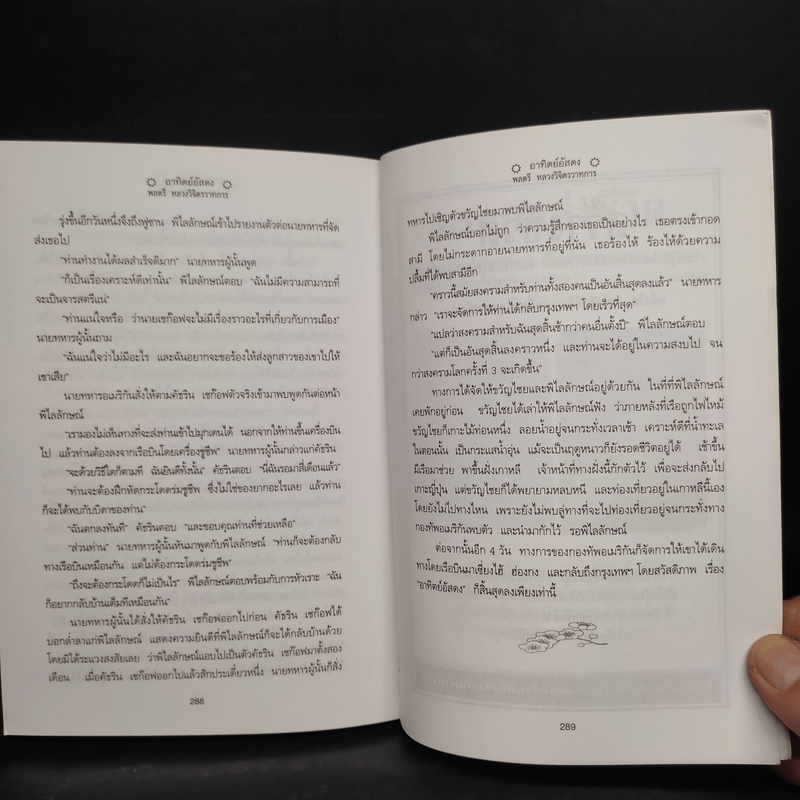 อาทิตย์อัสดง
พลตรี หลวงวิจิตรวาทการ
รุ่งขึ้นอีกวันหนึ่งจึงถึงฟูซาน พิไลลักษณ์เข้าไปรายงานตัวต่อนายทหารที่จัด
ส่งเธอไป
"ท่านทำงานได้ผลสำเร็จดีมาก" นายทหารผู้นั้นพูด
"ก็เป็นเรื่องเคราะห์ดีเท่านั้น" พิไลลักษณ์ตอบ "ฉันไม่มีความสามารถที่
จะเป็นจารสตรีแน่"
"ท่านแน่ใจหรือ ว่านายเชก๊อฟจะไม่มีเรื่องราวอะไรที่เกี่ยวกับการเมือง"
นายทหารผู้นั้นถาม
"ฉันแน่ใจว่าไม่มีอะไร และฉันอยากจะขอร้องให้ส่งลูกสาวของเขาไปให้
เขาเสีย"
นายทหารอเมริกันสั่งให้ตามคัธริน เชก๊อฟตัวจริงเข้ามาพบพูดกันต่อหน้า
พิไลลักษณ์
"เรามองไม่เห็นทางที่จะส่งท่านเข้าไปมุกเดนได้ นอกจากให้ท่านขึ้นเครื่องบิน
ไป แล้วท่านต้องลงจากเรือบินโดยเครื่องชูชีพ" นายทหารผู้นั้นกล่าวแก่คัธริน
"จะด้วยวิธีใดก็ตามที ฉันยินดีทั้งนั้น" คัธรินตอบ "นี่ฉันรอมาสี่เดือนแล้ว"
"ท่านจะต้องฝึกหัดกระโดดร่มชูชีพ ซึ่งไม่ใช่ของยากอะไรเลย แล้วท่าน
ก็จะได้พบกับบิดาของท่าน"
"ฉันตกลงทันที" คัธรินตอบ "และขอบคุณท่านที่ช่วยเหลือ"
"ส่วนท่าน" นายทหารผู้นั้นหันมาพูดกับพิไลลักษณ์ "ท่านก็จะต้องกลับ
ทางเรือบินเหมือนกัน แต่ไม่ต้องกระโดดร่มชูชีพ"
"ถึงจะต้องกระโดดก็ไม่เป็นไร" พิไลลักษณ์ตอบพร้อมกับการหัวเราะ "ฉัน
ก็อยากกลับบ้านเต็มทีเหมือนกัน"
นายทหารผู้นั้นได้สั่งให้คัธริน เชก๊อฟออกไปก่อน คัธริน เชก๊อฟได้
บอกลำลาแก่พิไลลักษณ์ แสดงความยินดีที่พิไลลักษณ์ก็จะได้กลับบ้านด้วย
โดยมิได้ระแวงสงสัยเลย ว่าพิไลลักษณ์แอบไปเป็นตัวคัธริน เชก๊อฟมาตั้งสอง
เดือน เมื่อคัธริน เชก๊อฟออกไปแล้วสักประเดี๋ยวหนึ่ง นายทหารผู้นั้นก็สั่ง
288
อาทิตย์อัสดง
พลตรี หลวงวิจิตรวาทการ
ทหารไปเชิญตัวขวัญไชยมาพบพิไลลักษณ์
พิไลลักษณ์บอกไม่ถูก ว่าความรู้สึกของเธอเป็นอย่างไร เธอตรงเข้ากอด
สามี โดยไม่กระดากอายนายทหารที่อยู่ที่นั่น เธอร้องไห้ ร้องไห้ด้วยความ
ปลื้มที่ได้พบสามีอีก
"คราวนี้สมัยสงครามสำหรับท่านทั้งสองคนเป็นอันสิ้นสุดลงแล้ว" นายทหาร
กล่าว "เราจะจัดการให้ท่านได้กลับกรุงเทพฯ โดยเร็วที่สุด"
"แปลว่าสงครามสำหรับฉันสุดสิ้นช้ากว่าคนอื่นตั้งปี" พิไลลักษณ์ตอบ
"แต่ก็เป็นอันสุดสิ้นลงคราวหนึ่ง และท่านจะได้อยู่ในความสงบไป จน
กว่าสงครามโลกครั้งที่ 3 จะเกิดขึ้น"
ทางการได้จัดให้ขวัญไชยและพิไลลักษณ์อยู่ด้วยกัน ในที่ที่พิไลลักษณ์
เคยพักอยู่ก่อน ขวัญไชยได้เล่าให้พิไลลักษณ์ฟัง ว่าภายหลังที่เรือถูกไฟไหม้
ขวัญไชยก็เกาะไม้ท่อนหนึ่ง ลอยน้ำอยู่จนกระทั่งเวลาเช้า เคราะห์ดีที่น้ำทะเล
ในตอนนั้น เป็นกระแสน้ำอุ่น แม้จะเป็นฤดูหนาวก็ยังรอดชีวิตอยู่ได้ เช้าขึ้น
มีเรือมาช่วย พาขึ้นฝั่งเกาหลี เจ้าหน้าที่ทางฝั่งนี้กักตัวไว้ เพื่อจะส่งกลับไป
เกาะญี่ปุ่น แต่ขวัญไชยก็ได้พยายามหลบหนี และท่องเที่ยวอยู่ในเกาหลีนี้เอง
โดยยังไม่ไปทางไหน เพราะยังไม่พบลู่ทางที่จะไปท่องเที่ยวอยู่จนกระทั่งทาง
กองทัพอเมริกันพบตัว และนำมากักไว้ รอพิไลลักษณ์
ต่อจากนั้นอีก 4 วัน ทางการของกองทัพอเมริกันก็จัดการให้เขาได้เดิน
ทางโดยเรือบินมาเซี่ยงไฮ้ ฮ่องกง และกลับถึงกรุงเทพฯ โดยสวัสดิภาพ เรื่อง
"อาทิตย์อัสดง" ก็สิ้นสุดลงเพียงเท่านี้
289